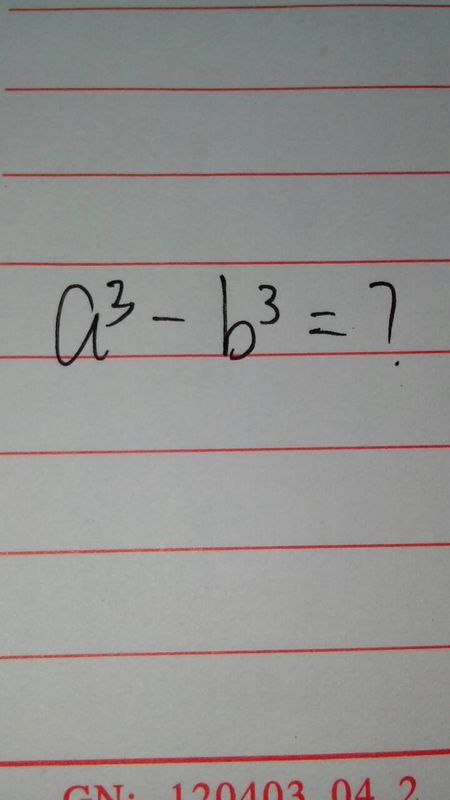 a³ - b³ = ?
GN: 120403 04 2